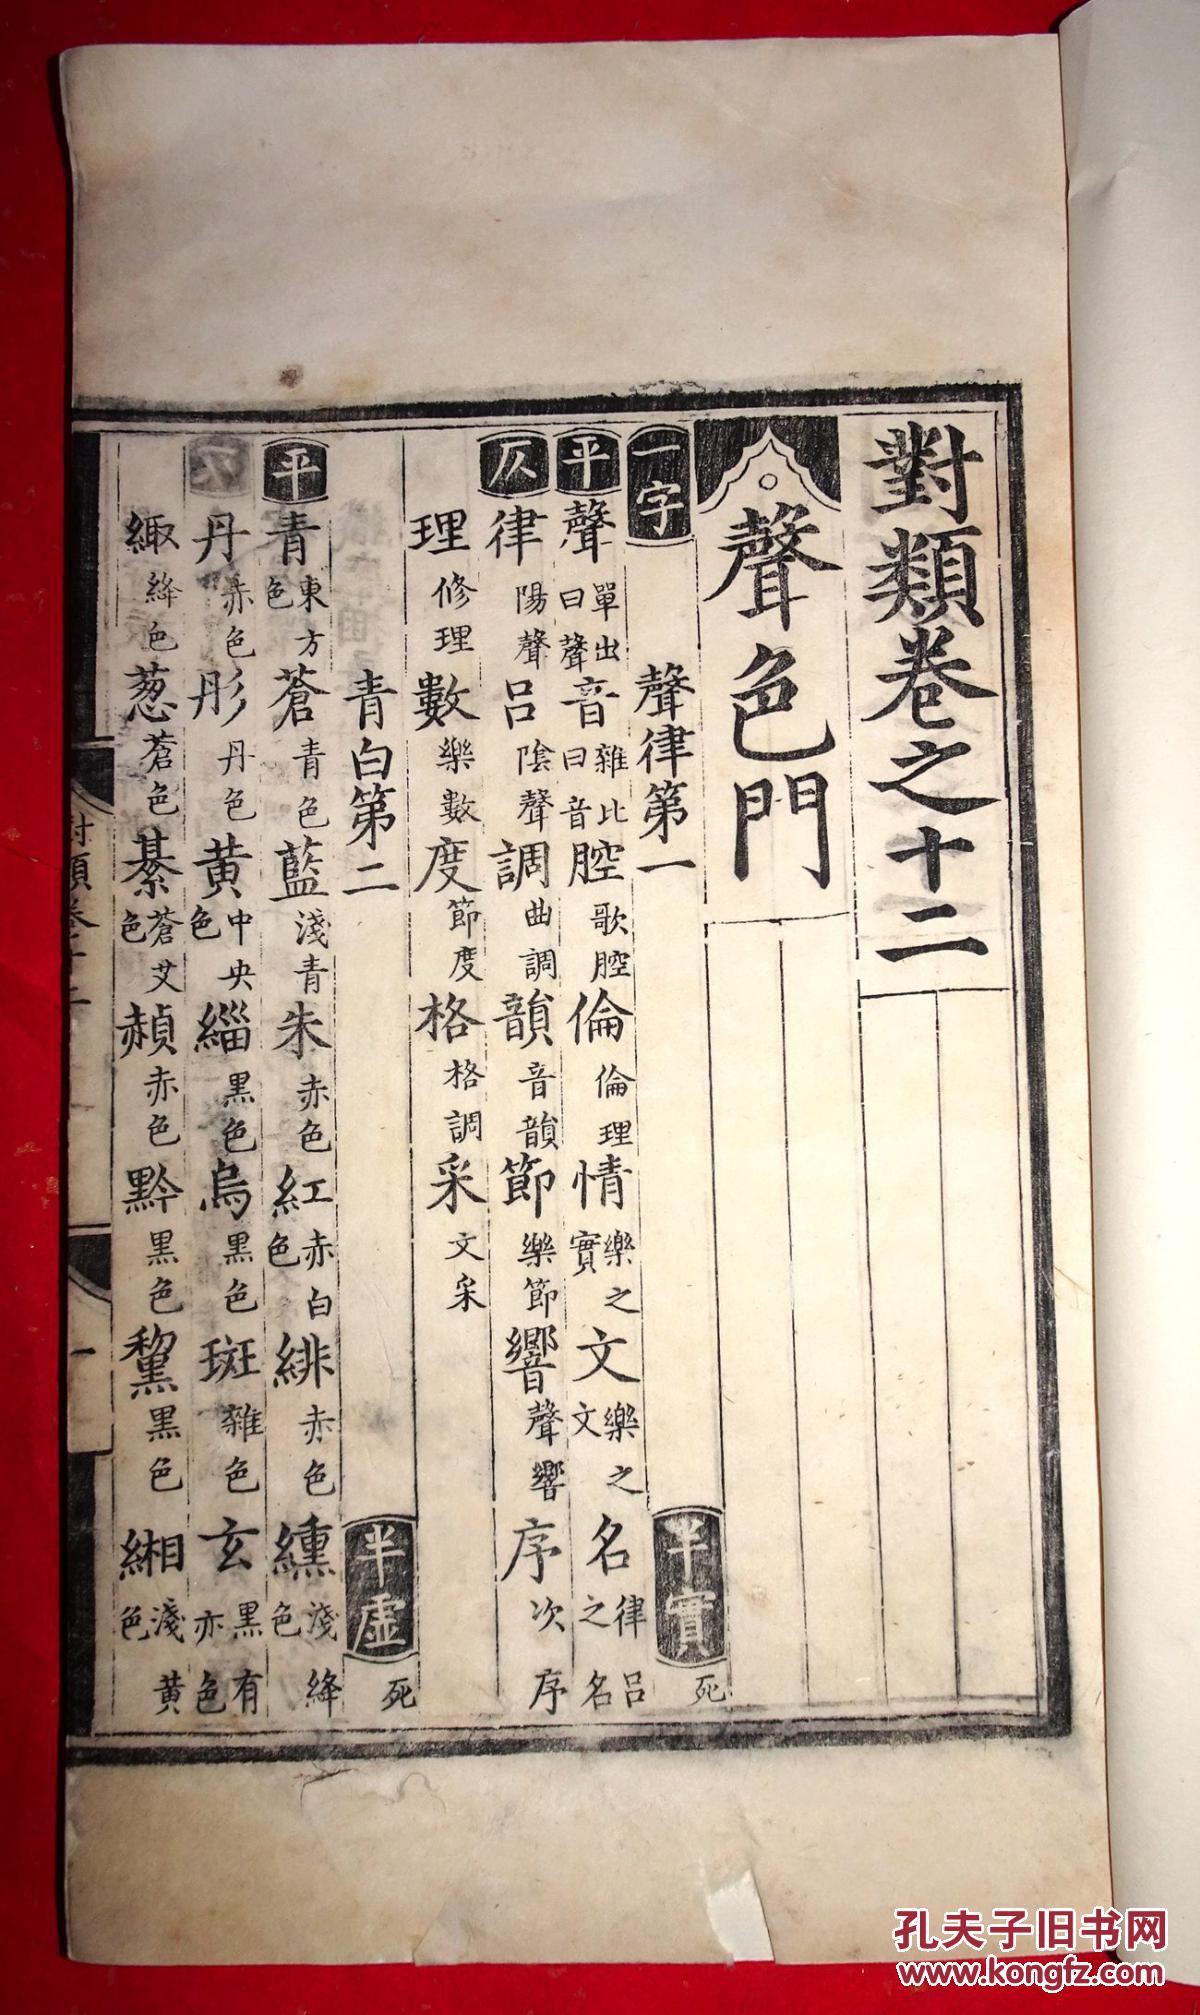 對類卷之十二
聲色門
一字 聲律第一 半實 死
平 聲 單出曰聲 音 雜比曰音 腔 歌腔 倫 倫理 情 樂之實 文 樂之文 名 律呂之名
仄 律 陽聲 呂 陰聲 調 曲調 韻 音韻 節 樂節 響 聲響 序 次序
理 修理 數 樂數 度 節度 格 格調 采 文采
青白第二 半虛 死
平 青 東方色 蒼 青色 藍 淺青 朱 赤色 紅 赤白色 緋 赤色 纁 淺絳色
丹 赤色 彤 丹色 黃 中央色 緇 黑色 烏 黑色 斑 雜色 玄 黑有亦色
緅 絳色 葱 蒼色 綦 蒼艾色 赬 赤色 黔 黑色 黧 黑色 緗 淺黃色
對類卷十二 一
孔夫子旧书网
www.kongfz.com